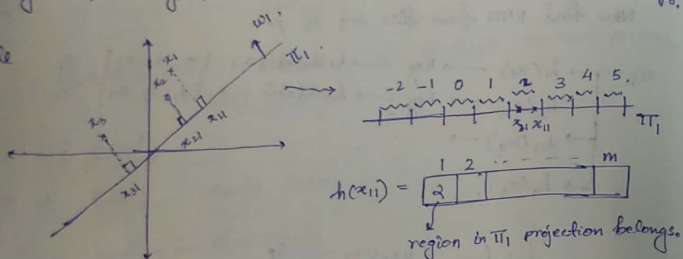 w₁
π₁
x₁
x₂
x₃
x₁₁
x₂₁
x₃₁
-2 -1 0 1 2 3 4 5
x₂₁ x₁₁
π₁
1 2 m
h(x₁₁) = 2
region in π₁ projection belongs.